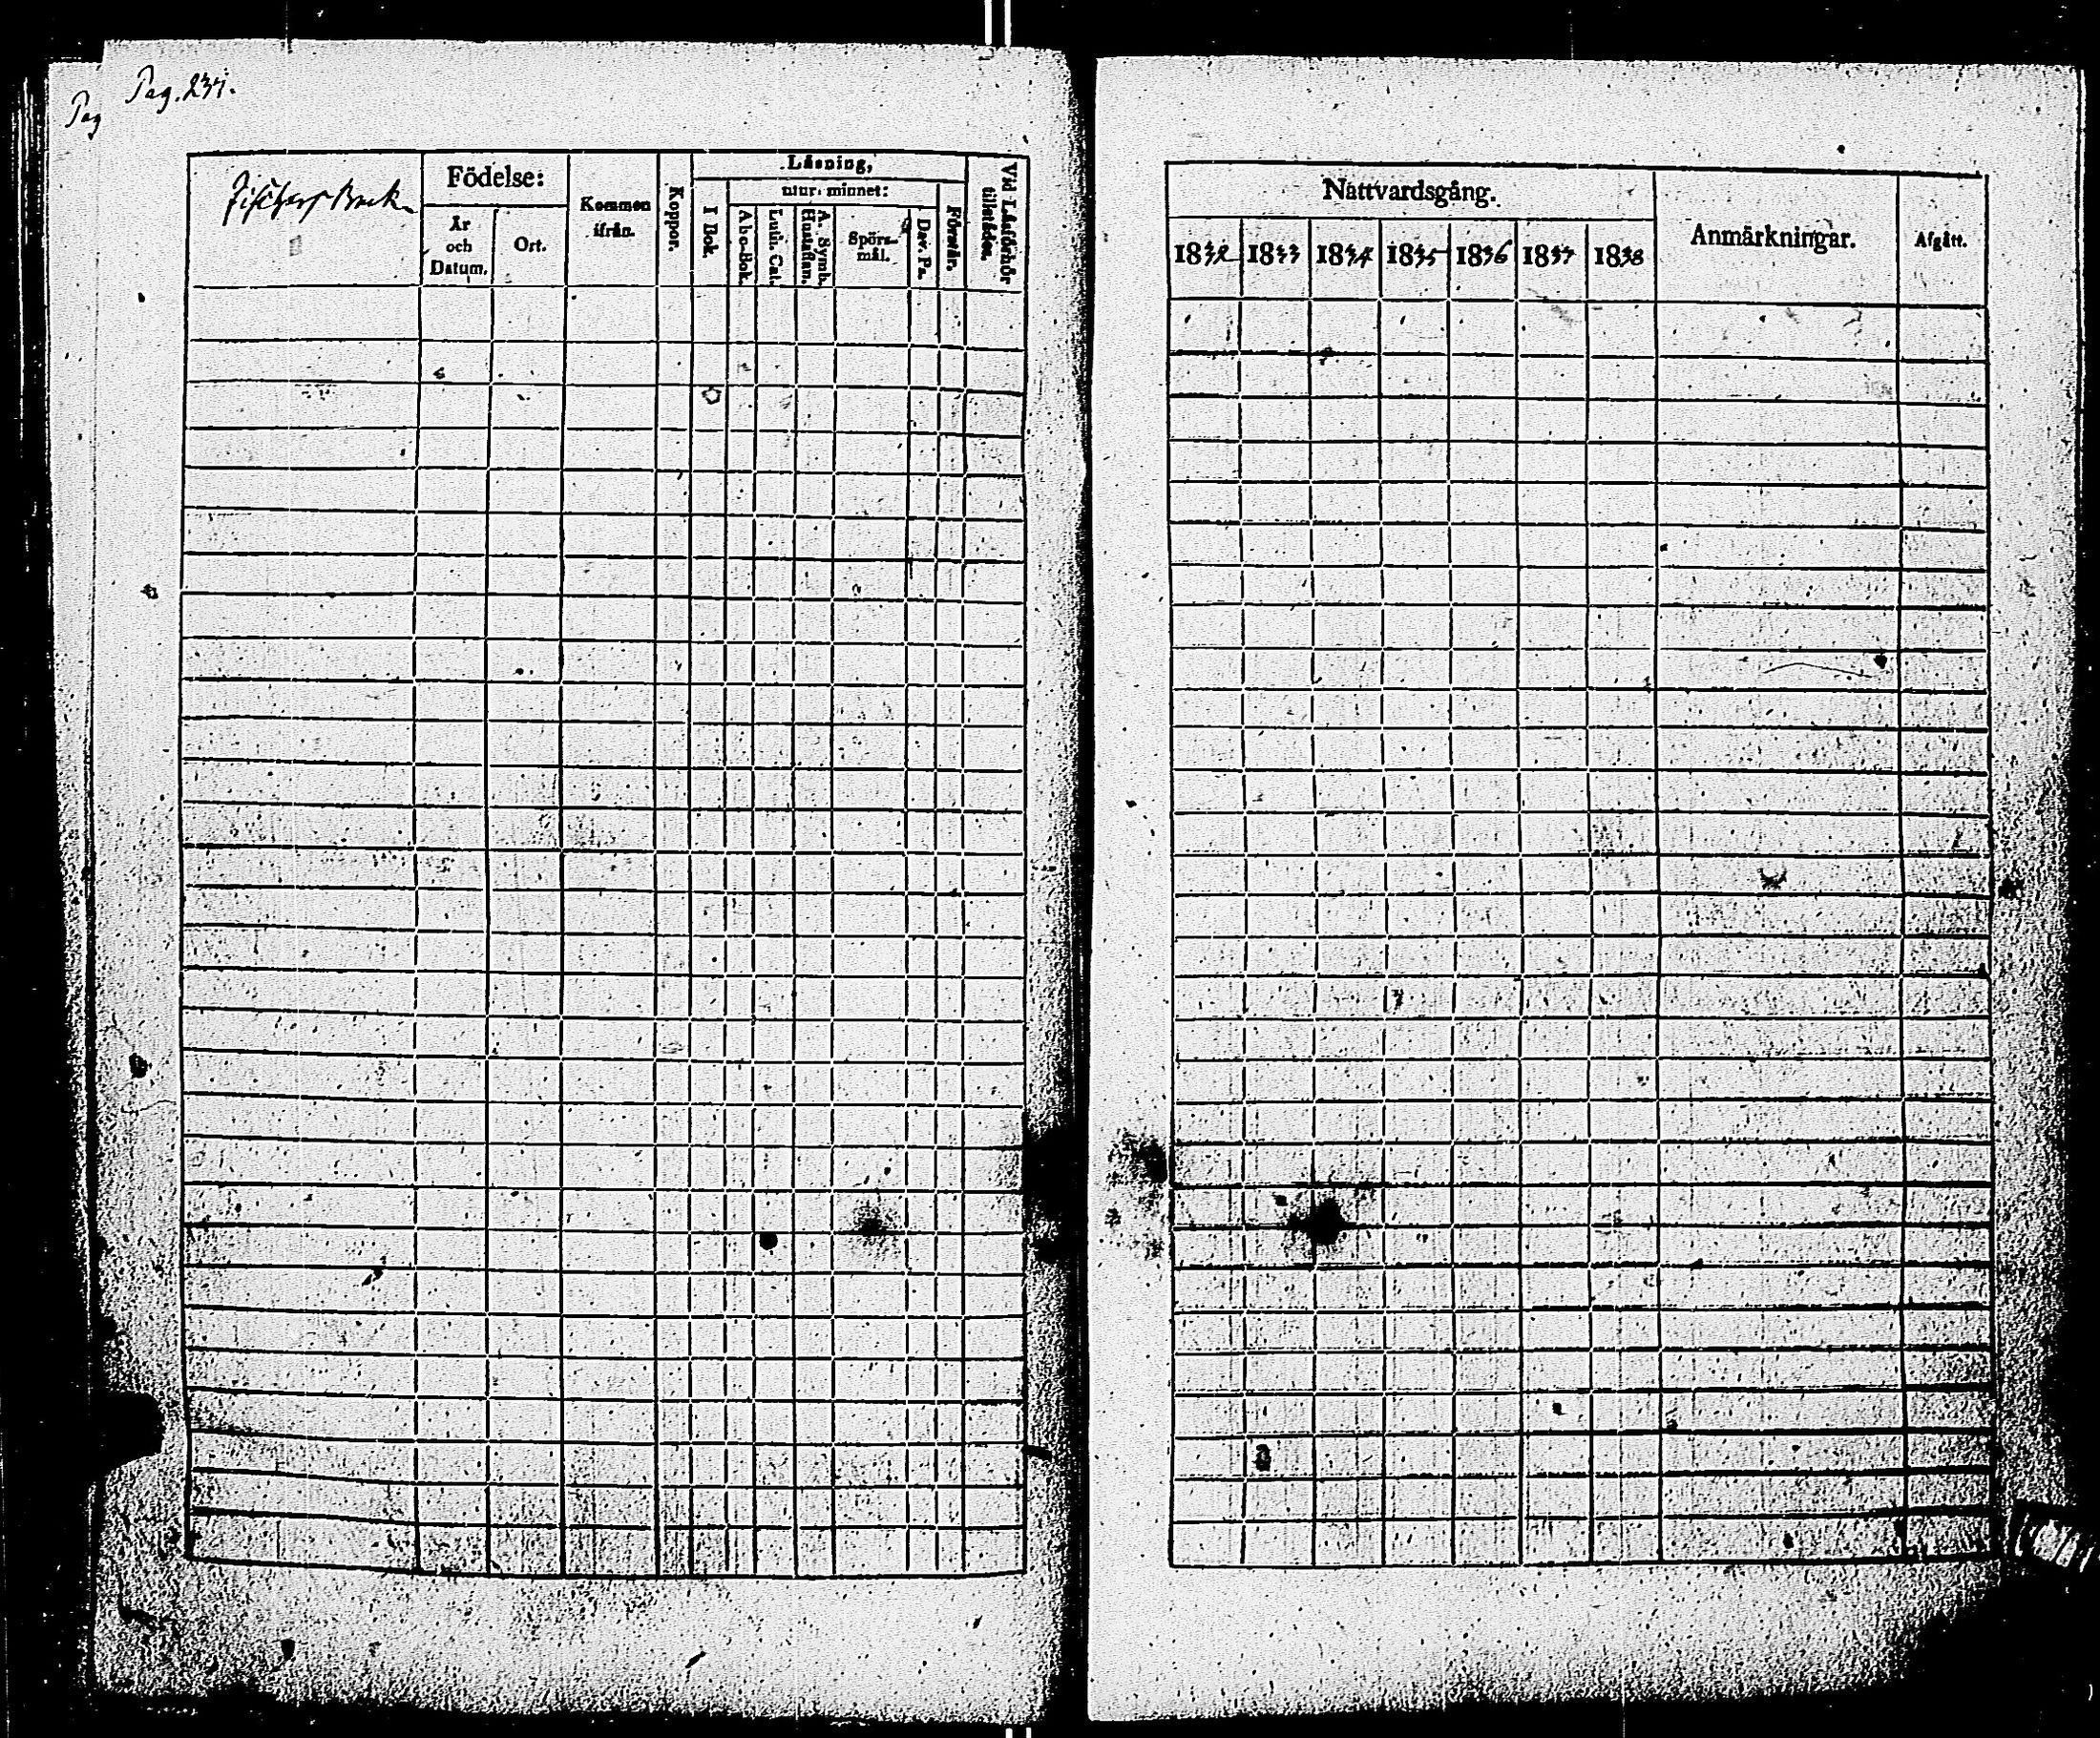 Pag. 234.
Pag
Födelse:
År
och
Datum.
Ort.
Kommen
ifrån.
Koppor.
Läsning,
utur minnet:
I Bok.
A-b-c-Bok.
Luth. Cat.
A. Symb.
Hustaflan.
Spörs-
mål.
Dav. Ps.
Förstår.
Vid Läsförhör
tillstädes.
Nattvardsgång.
1832
1833
1834
1835
1836
1837
1838
Anmärkningar.
Afgått.